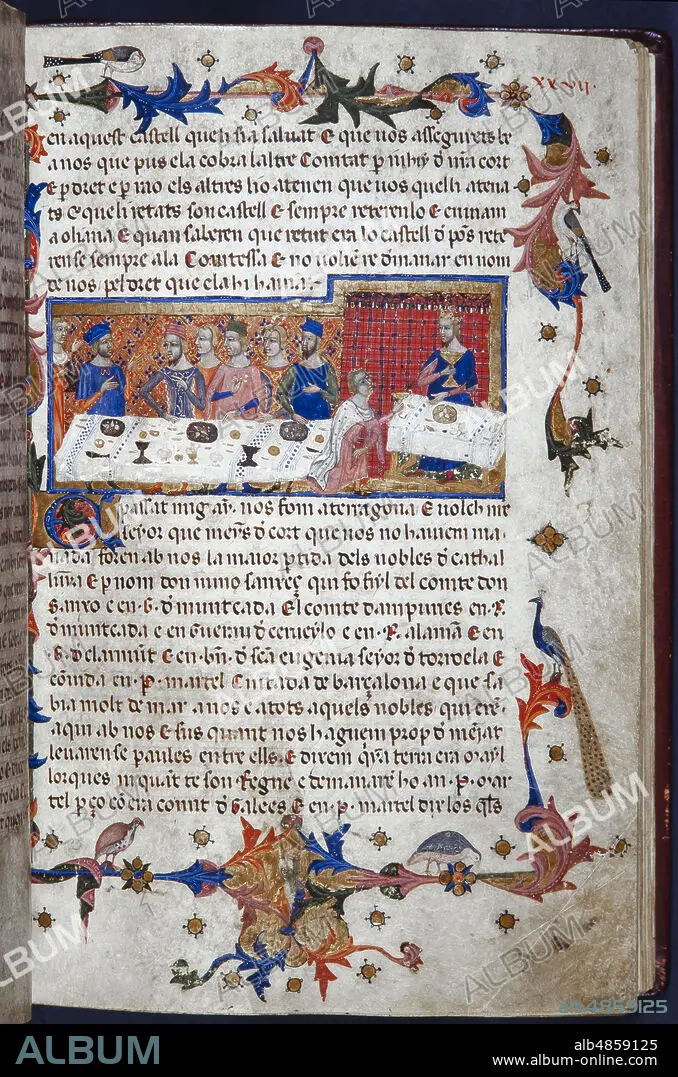 xxvij.
en aquest castell que li sia saluat E que uos assegurets be
a nos que pus ela cobra laltre Comtat
E p dret e p rao els altres lio atenen que uos queli atena
ts e queli retats son castell E sempre reterenlo E enuiam
a oliana E quan saberen que retut era lo castell
rense sempre ala Comtessa E no uolie en nom
de nos pel dret que ela hi hauia.
passat mig an. nos fom a terragona E uolch nre
seyor que meyns d cort que nos no hauiem ma
nada foren ab nos la maior ptida dels nobles d cathal
E p nom don nuno sanxeç qui fo fiyl del comte don
Sanxo e en .G. d muntcada El comte dampuries en .R.
d muntcada e en Guerau d cerueylo e en .R. alaman E en
.G. d claramunt E en d eugenia seyor d torroela E
en .P. martel Ciutada de barçalona e que sa
bia molt de mar a nos e a tots aquels nobles qui eren
aqui ab nos E sus quant nos haguem prop d meniat
leuarense paules entre ells. E direm terra era mayl
lorques su Regne e demanaren ho an .P. mar
tel p ço era comit d Galees E en .P. martel dix los
ALBUM
alb4859125
ALBUM
alb4859125
www.album-online.com